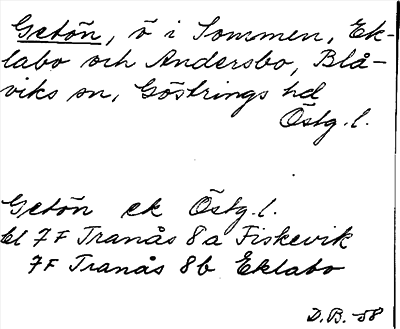 Getön, ö i Sommen, Ek-
labo och Andersbo, Blå-
viks sn, Göstrings hd
Östg.l.
Getön ek Östg.l.
bl 7F Tranås 8a Fiskevik
7F Tranås 8b Eklabo
D.B. -58